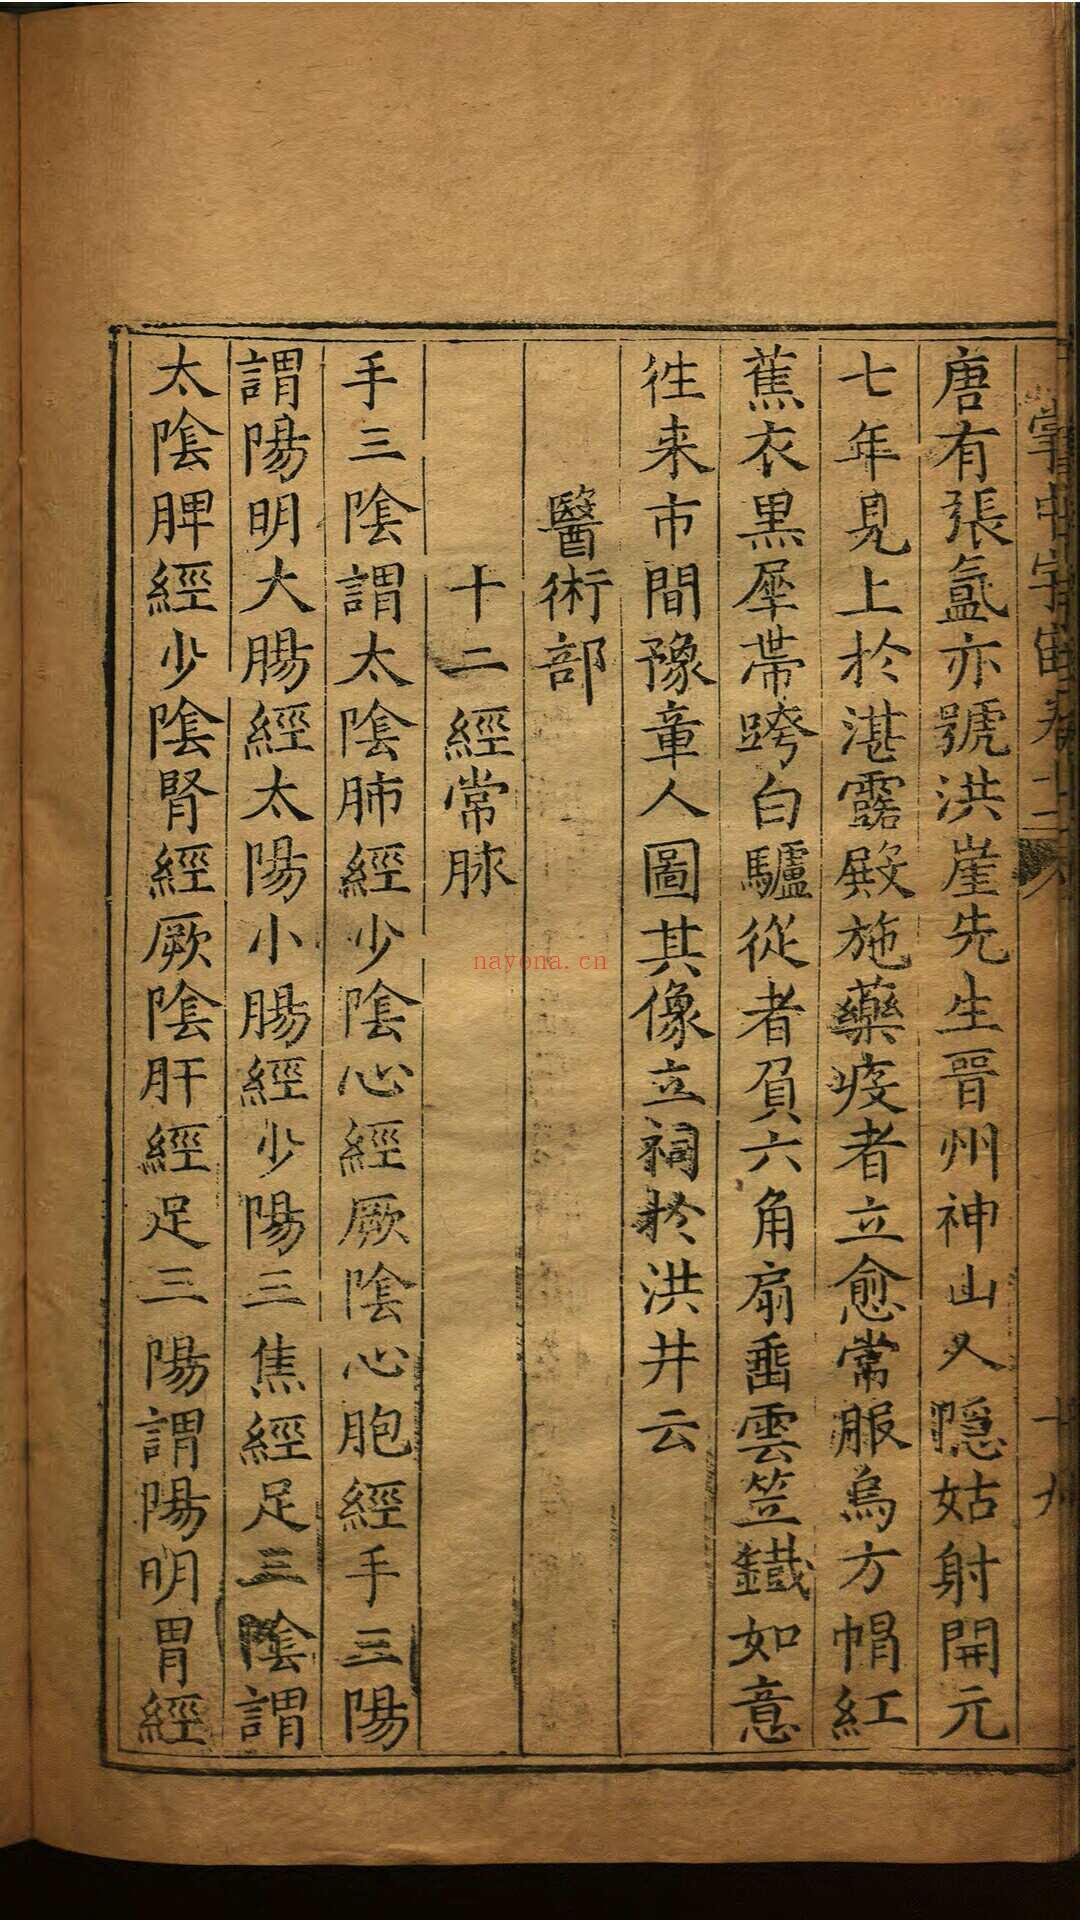 掌中宇宙卷十二
十九
唐有張氳亦號洪崖先生晋州神山人隱姑射開元
七年見上於湛露殿施藥疫者立愈常服烏方帽紅
蕉衣黒犀帶跨白驢從者負六角扇垂雲笠鐵如意
徃来市間豫章人圖其像立祠於洪井云
醫術部
十二經常脉
手三陰謂太陰肺經少陰心經厥陰心胞經手三陽
謂陽明大腸經太陽小腸經少陽三焦經足三陰謂
太陰脾經少陰腎經厥陰肝經足三陽謂陽明胃經
nayona.cn